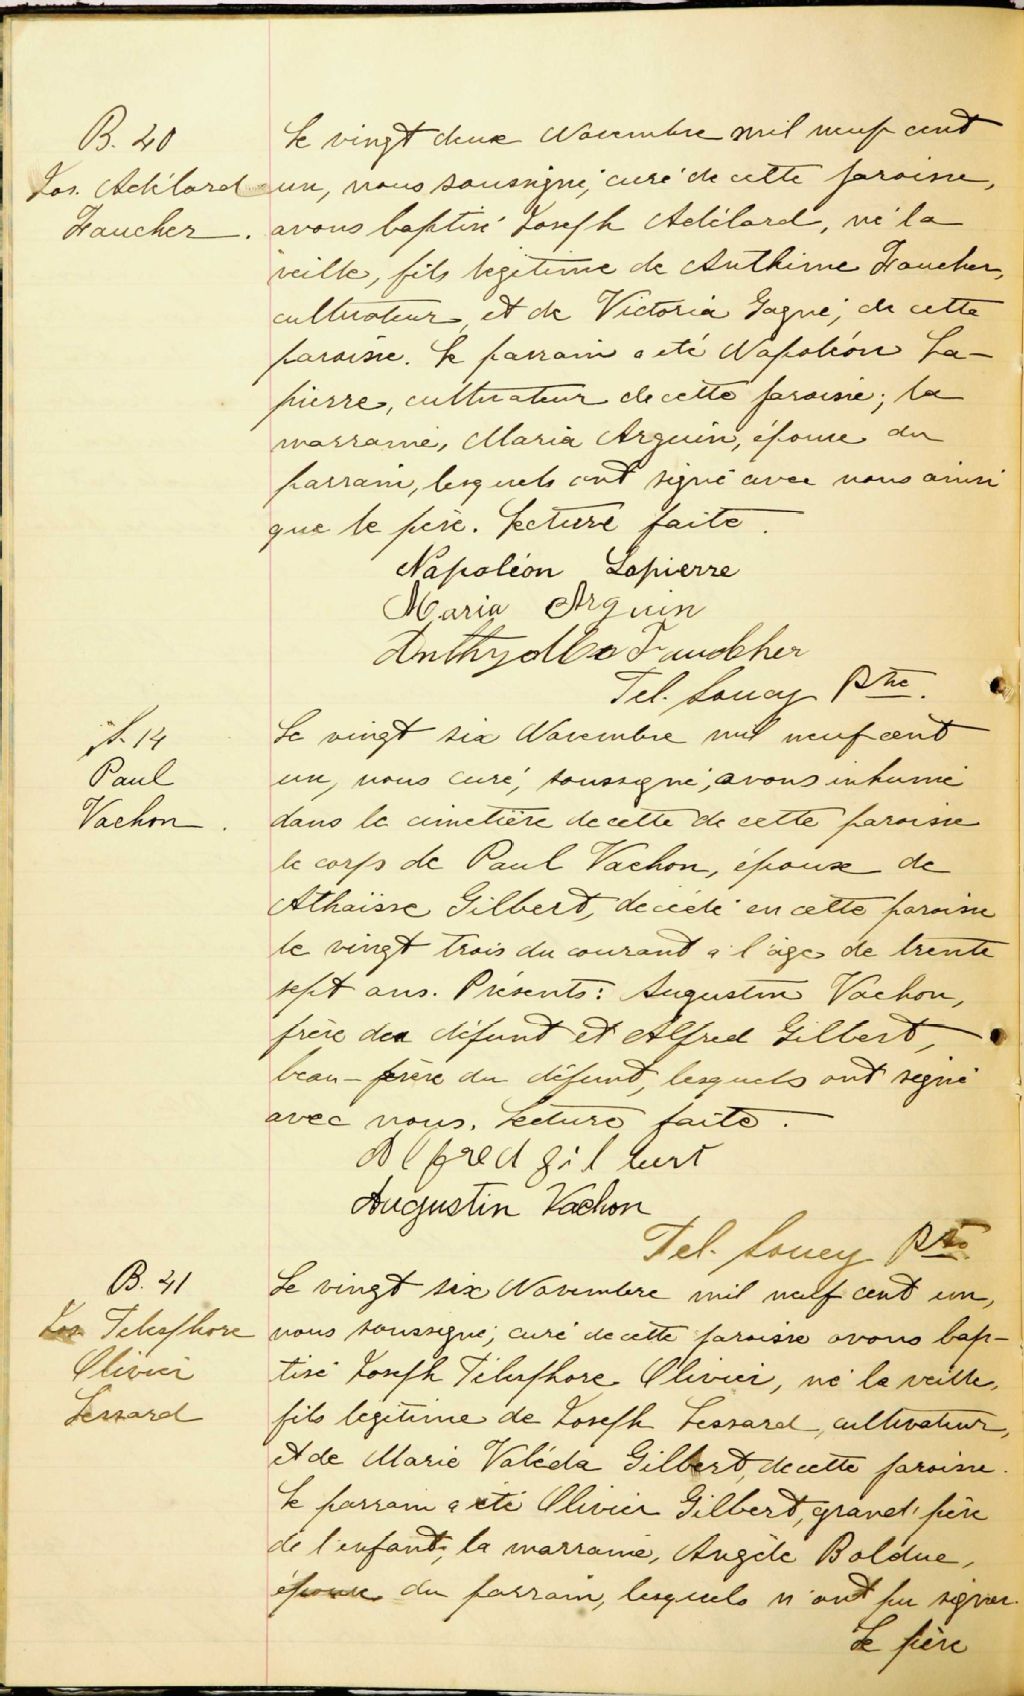 B. 40
Jos. Adélard
Faucher.
Le vingt deux Novembre mil neuf cent
un, nous soussigné, curé de cette paroisse,
avons baptisé Joseph Adélard, né la
veille, fils légitime de Anthime Faucher,
cultivateur, et de Victoria Gagné, de cette
paroisse. Le parrain a été Napoléon La-
pierre, cultivateur de cette paroisse; la
marraine, Maria Arguin, épouse du
parrain, lesquels ont signé avec nous ainsi
que le père. Lecture faite.
Napoléon Lapierre
Maria Arguin
Faucher
Tel. Soucy Ptre.
S. 14
Paul
Vachon.
Le vingt six Novembre mil neuf cent
un, nous curé, soussigné, avons inhumé
dans le cimetière de cette de cette paroisse
le corps de Paul Vachon, époux de
Athaïsse Gilbert, décédé en cette paroisse
le vingt trois du courant a l'âge de trente
sept ans. Présents: Augustin Vachon,
frère du défunt et Alfred Gilbert,
beau-frère du défunt, lesquels ont signé
avec nous. Lecture faite.
Alfred
Augustin Vachon
Tel. Soucy Ptre
B. 41
Jos Telesphore
Olivier
Lessard
Le vingt six Novembre mil neuf cent un,
nous soussigné, curé de cette paroisse avons bap-
tisé Joseph Télesphore Olivier, né la veille,
fils légitime de Joseph Lessard, cultivateur,
et de Marie Valéda Gilbert, de cette paroisse.
Le parrain a été Olivier Gilbert, grand'père
de l'enfant, la marraine, Angèle Bolduc,
épouse du parrain, lesquels n'ont pu signer.
Le père